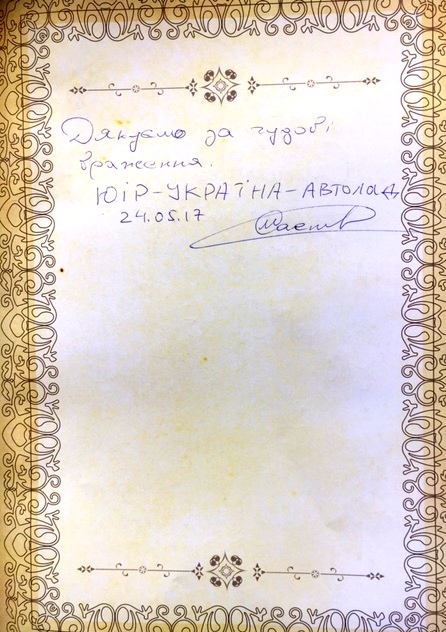 Дякуємо за чудові
враження.
ЮІР-УКРАЇНА-АВТОЛАД
24.05.17